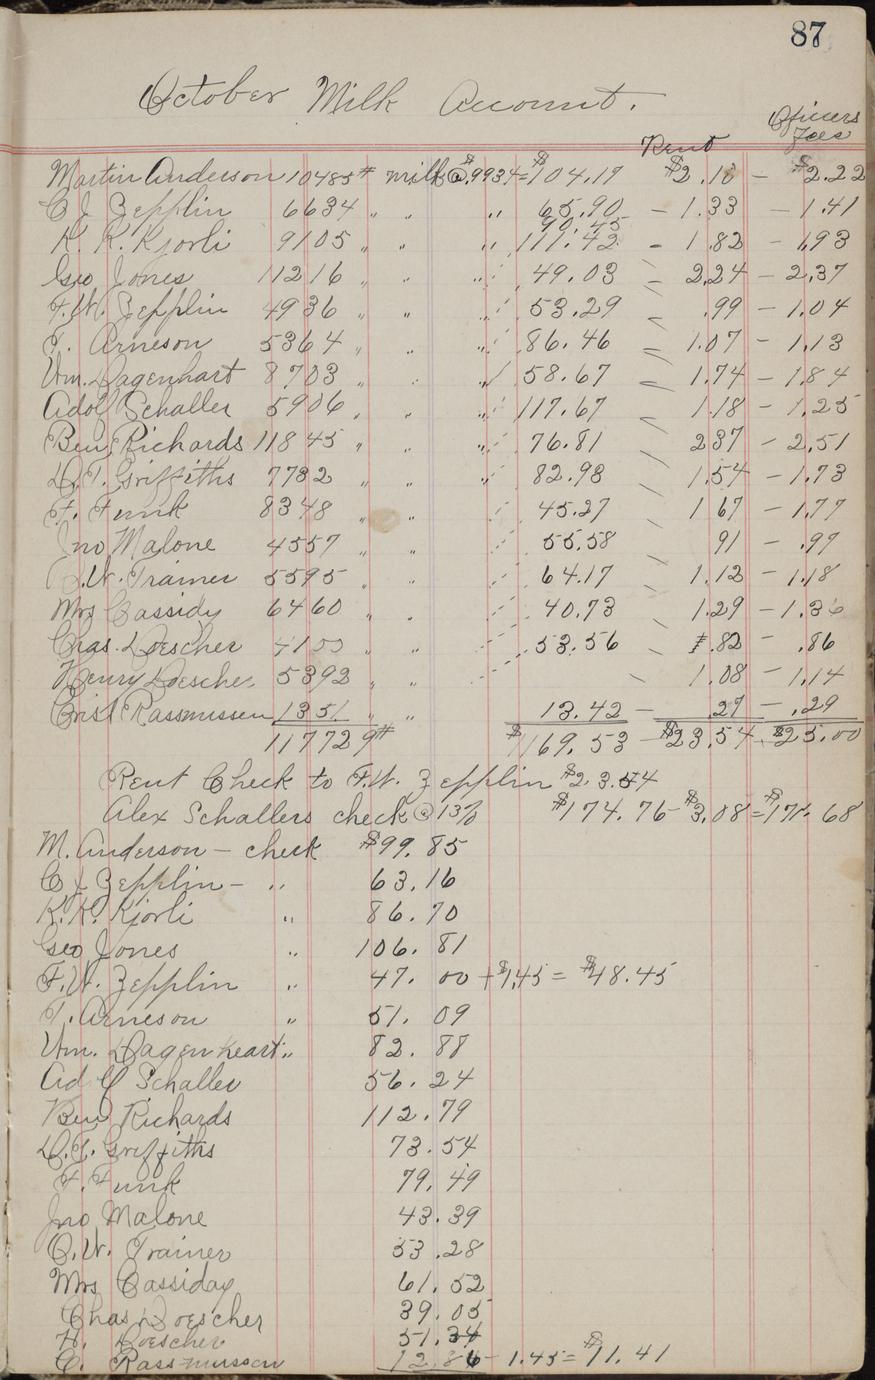 87
October Milk Account.
Rent Officers Fees
Martin Anderson 10485# milk @ $.9934 = $104.17 $2.10 - $2.22
C J Zepplin 6634 " " " 65.90 - 1.33 - 1.41
90.45
K. K. Kjorli 9105 " " " 111.42 - 1.82 - 1.93
Geo Jones 11216 " " " 49.03 - 2.24 - 2.37
F. W. Zepplin 4936 " " " 53.29 - .99 - 1.04
T. Arneson 5364 " " " 86.46 - 1.07 - 1.13
Wm. Dagenhart 8703 " " " 58.67 - 1.74 - 1.84
Adolf Schaller 5906 " " " 117.67 - 1.18 - 1.25
Ben Richards 11845 " " " 76.81 - 2.37 - 2.51
D. T. Griffiths 7732 " " " 82.93 - 1.54 - 1.73
F. Funk 8348 " " 45.27 - 1 67 - 1.77
Jno Malone 4557 " " 55.58 - 91 - .97
C. W. Trainer 5595 " " 64.17 - 1.12 - 1.18
Mrs Cassidy 6460 " " 40.73 1.29 - 1.36
Chas. Doescher 4100 " " 53.56 .82 - .86
Henry Doescher 5392 " " - 1.08 - 1.14
Crist Rasmussen 1351 " " 13.42 - .27 - .29
117729# $1169.53 - $23.54 - $25.00
Rent Check to F. W. Zepplin $23.54
Alex Schallers check @ 13% $174.76 - $3.08 = $171.68
M. Anderson - check $99.85
C J Zepplin - " 63.16
K. K. Kjorli " 86.70
Geo Jones " 106.81
F. W. Zepplin " 47.00 + $1.45 = $48.45
T. Arneson " 51.09
Wm. Dagenheart " 82.88
Adolf Schaller 56.24
Ben Richards 112.79
D. T. Griffiths 73.54
F. Funk 79.49
Jno Malone 43.39
C. W. Trainer 53.28
Mrs Cassiday 61.52
Chas Doescher 39.05
H. Doescher 51.34
C. Rassmussen 12.86 - 1.45 = $11.41